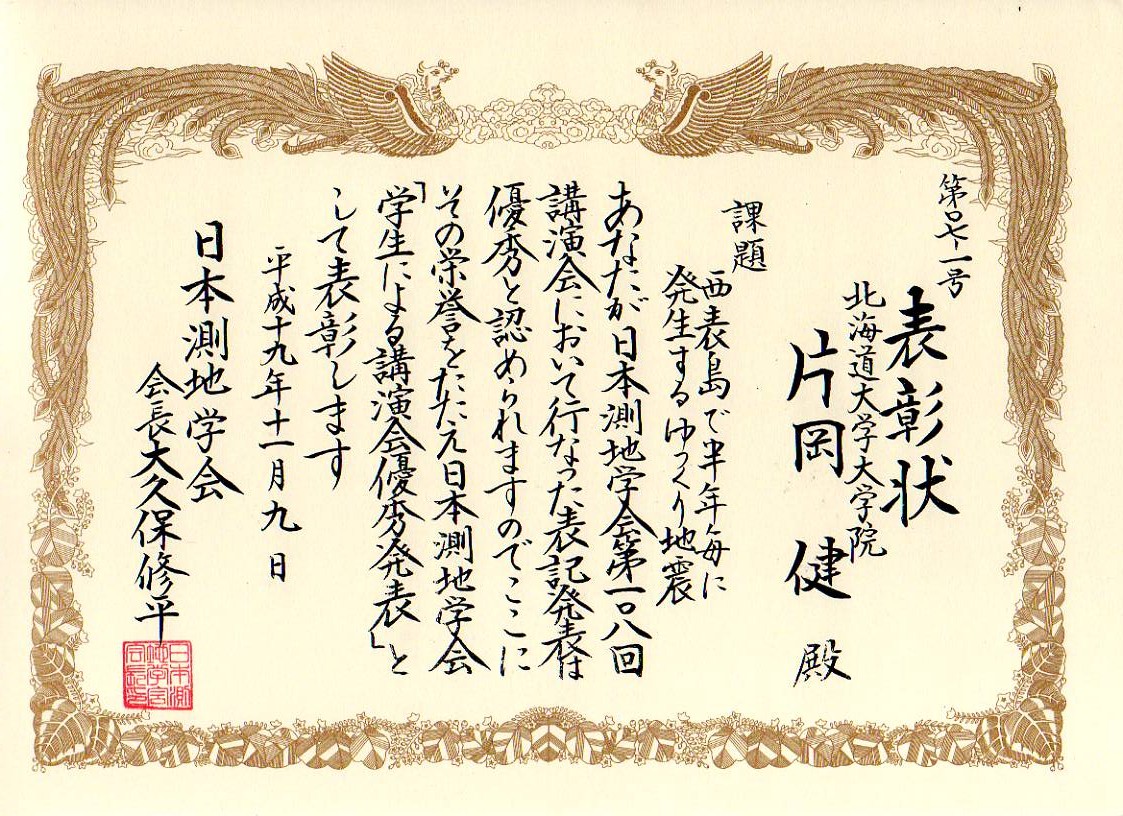 第〇七-一号
表彰状
北海道大学大学院
片岡 健 殿
課題
西表島で半年毎に
発生するゆっくり地震
あなたが日本測地学会第一〇八回
講演会において行なった表記発表は
優秀と認められますのでここに
その栄誉をたたえ日本測地学会
「学生による講演会優秀発表」と
して表彰します
平成十九年十一月九日
日本測地学会
会長大久保修平
日本測
地学会
会長印